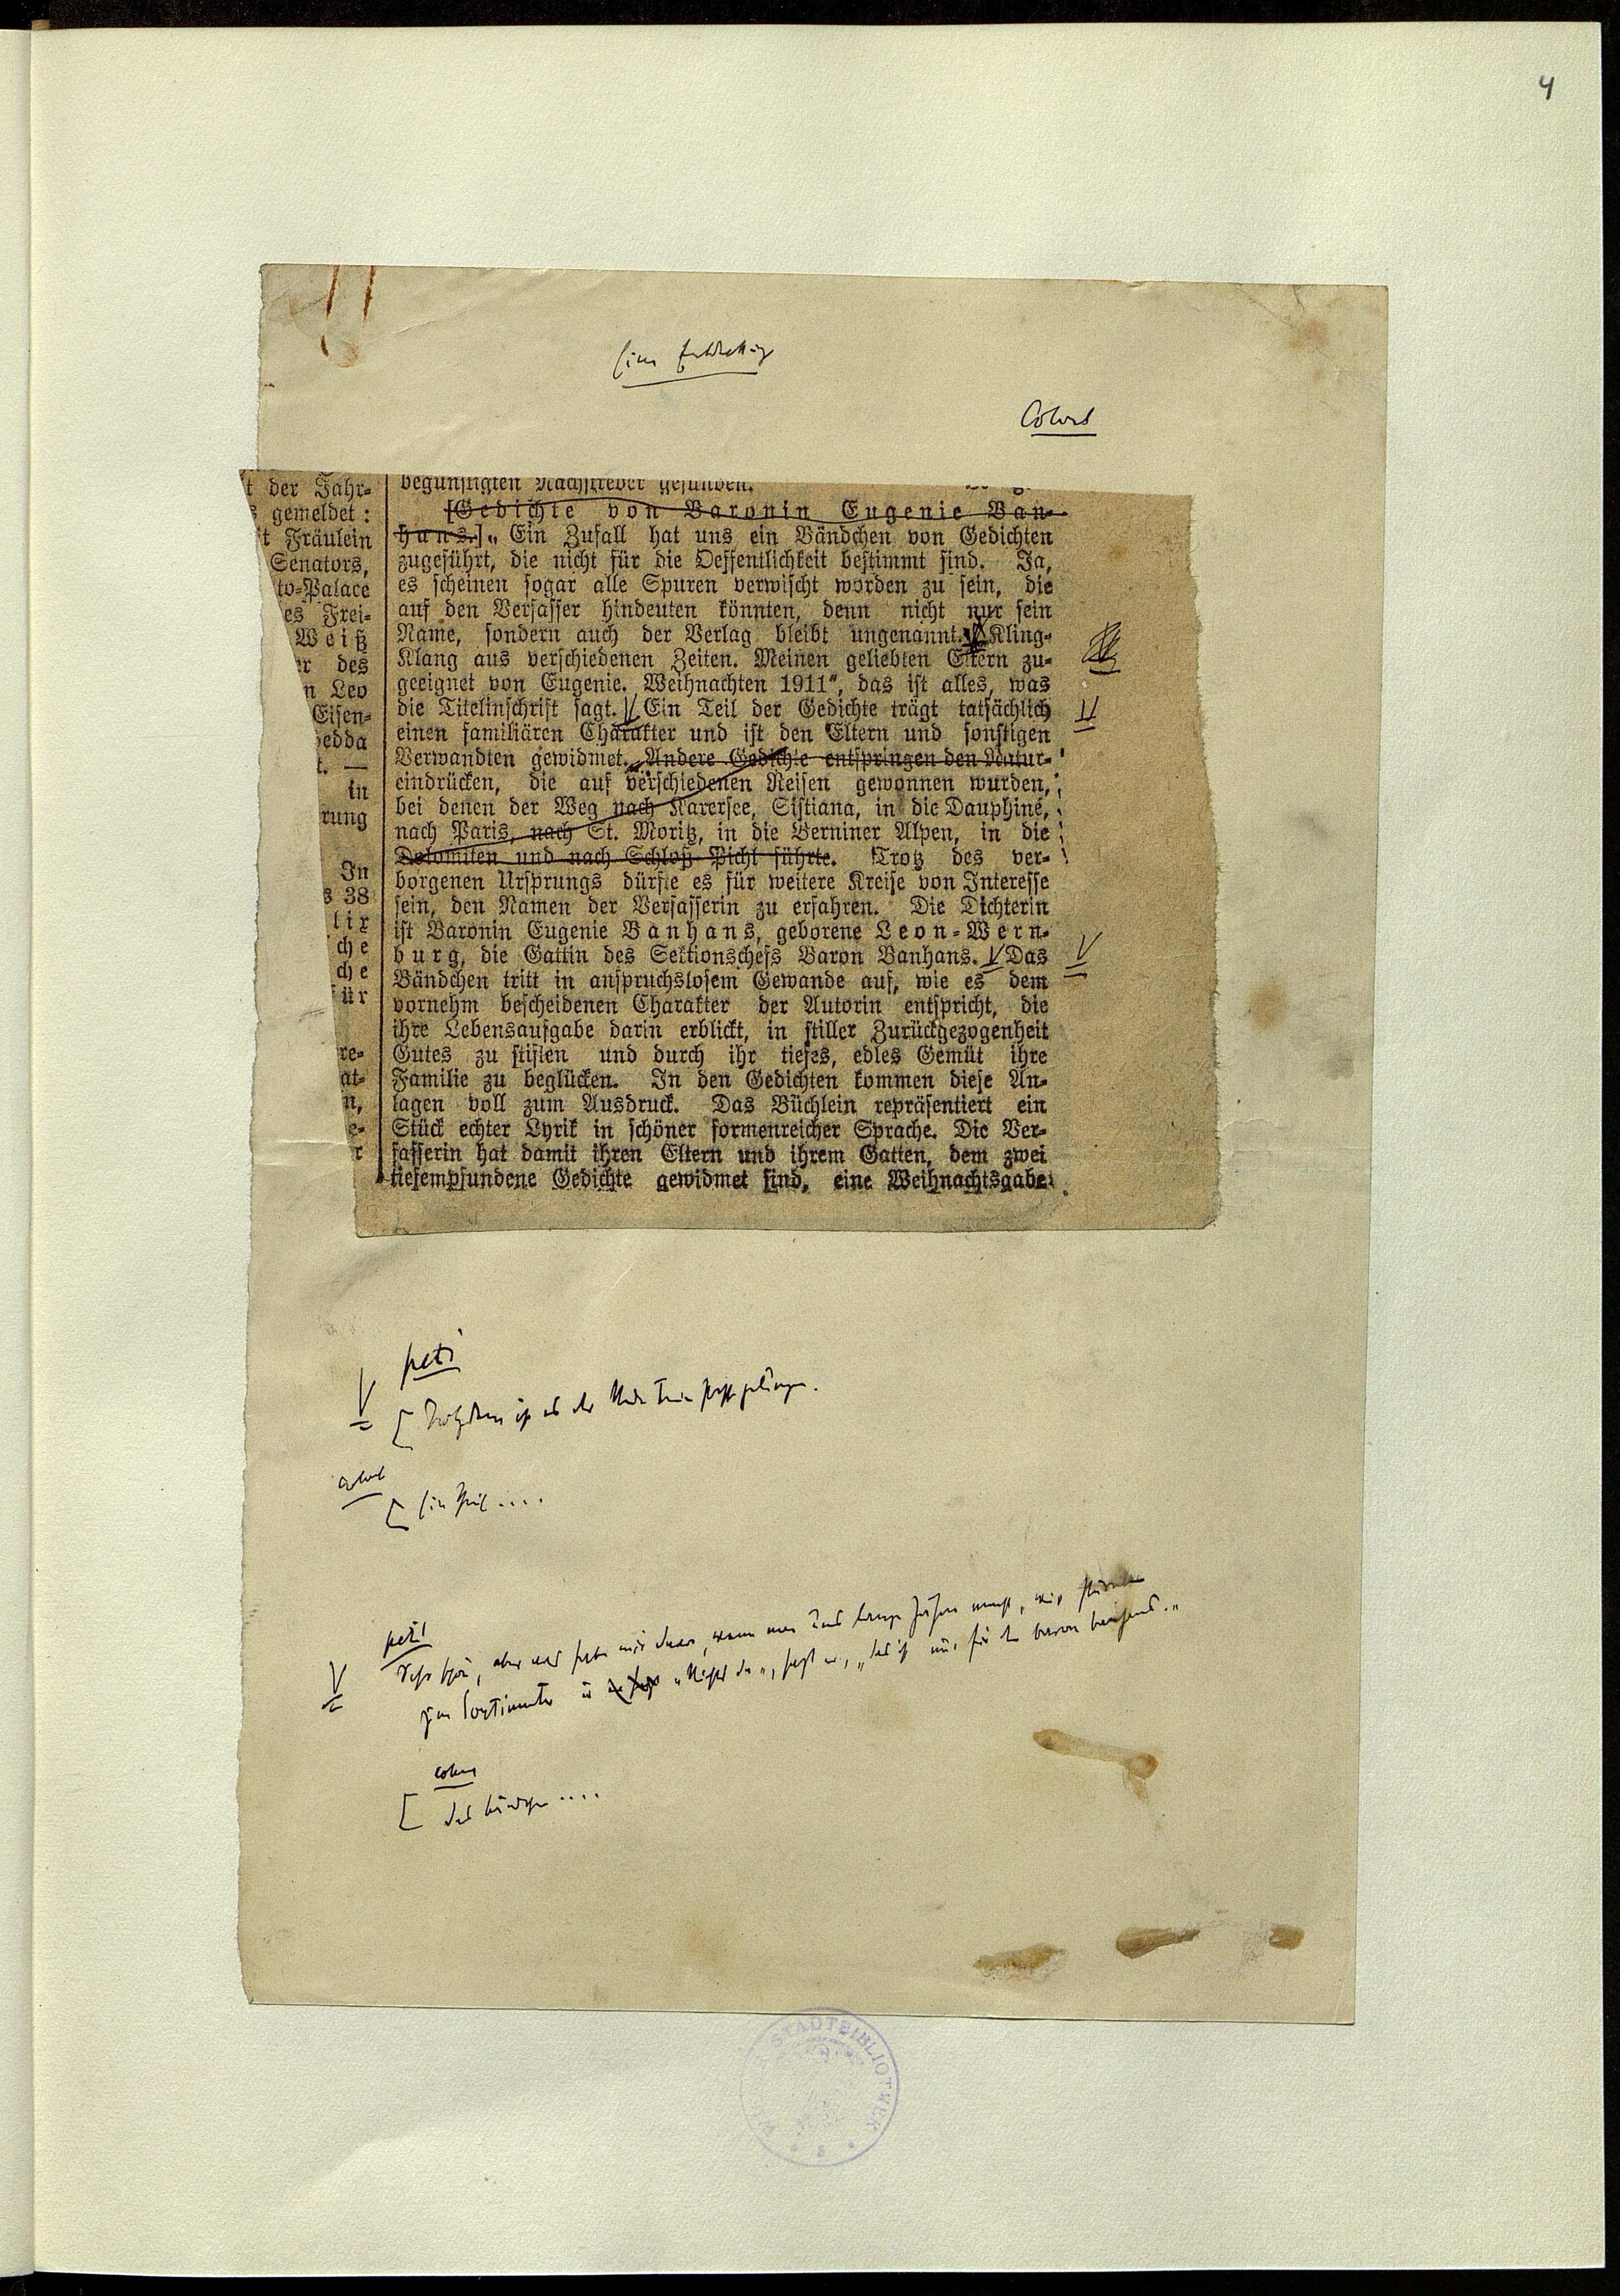 4
Eine Entdeckung
Colonel
begünstigten Nachstreber gefunden.
t der Jahr-
s gemeldet:
it Fräulein
Senators,
to-Palace
es Frei-
Weiß
er des
n Leo
Eisen-
hedda
t. —
in
rung
In
s 38
lix
che
che
für
re-
at-
n,
e-
r
[Gedichte von Baronin Eugenie Ban-
hans.] „Ein Zufall hat uns ein Bändchen von Gedichten
zugeführt, die nicht für die Oeffentlichkeit bestimmt sind. Ja,
es scheinen sogar alle Spuren verwischt worden zu sein, die
auf den Verfasser hindeuten könnten, denn nicht nur sein
Name, sondern auch der Verlag bleibt ungenannt. Kling-
Klang aus verschiedenen Zeiten. Meinen geliebten Eltern zu-
geeignet von Eugenie. Weihnachten 1911“, das ist alles, was
die Titelinschrift sagt. Ein Teil der Gedichte trägt tatsächlich
einen familiären Charakter und ist den Eltern und sonstigen
Verwandten gewidmet. Andere Gedichte entspringen den Natur-
eindrücken, die auf verschiedenen Reisen gewonnen wurden,
bei denen der Weg nach Karersee, Sistiana, in die Dauphiné,
nach Paris, nach St. Moritz, in die Berniner Alpen, in die
Dolomiten und nach Schloß Picht führte. Trotz des ver-
borgenen Ursprungs dürfte es für weitere Kreise von Interesse
sein, den Namen der Verfasserin zu erfahren. Die Dichterin
ist Baronin Eugenie Banhans, geborene Leon-Wern-
burg, die Gattin des Sektionschefs Baron Banhans. Das
Bändchen tritt in anspruchslosem Gewande auf, wie es dem
vornehm bescheidenen Charakter der Autorin entspricht, die
ihre Lebensaufgabe darin erblickt, in stiller Zurückgezogenheit
Gutes zu stiften und durch ihr tiefes, edles Gemüt ihre
Familie zu beglücken. In den Gedichten kommen diese An-
lagen voll zum Ausdruck. Das Büchlein repräsentiert ein
Stück echter Lyrik in schöner formenreicher Sprache. Die Ver-
fasserin hat damit ihren Eltern und ihrem Gatten, dem zwei
tiefempfundene Gedichte gewidmet sind, eine Weihnachtsgabe
petit
[Trotzdem ist es der
[Ein Theil ....
petit
Sehr schön, aber was
zum Sortimenter „Nichts da“, sagt er, „das ist nur für den Baron Banhans.“
[Das Bändchen ....
WIENER STADTBIBLIOTHEK